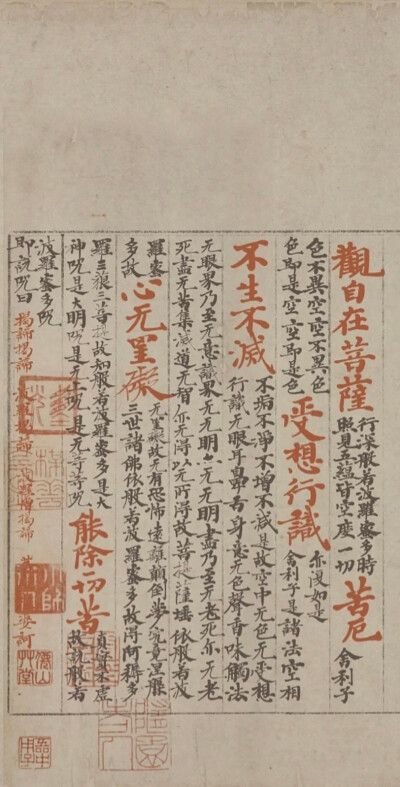 觀自在菩薩
行深般若波羅蜜多時
照見五蘊皆空度一切
苦厄
舍利子
色不異空空不異色
色即是空空即是色
受想行識
亦復如是
舍利子是諸法空相
不生不滅
不垢不淨不增不減是故空中无色无受想
行識无眼耳鼻舌身意无色聲香味觸法
无眼界乃至无意識界无无明亦无无明盡乃至无老死亦无老
死盡无苦集滅道无智亦无得以无所得故菩提薩埵依般若波
羅蜜多故
心无罣礙
无罣礙故无有恐怖遠離顛倒夢究竟涅槃
三世諸佛依般若波羅蜜多故得阿耨多
羅三藐三菩提故知般若波羅蜜多是大
神呪是大明呪是无上呪是无等等呪
能除一切苦
真實不虛
故說般若
波羅蜜多呪
即說呪曰
揭諦揭諦
波羅揭諦
波羅僧揭諦
娑訶